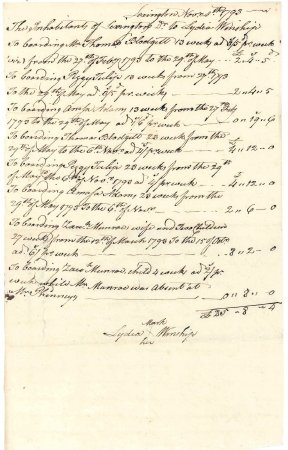 Lexington Nov. 1793
The Inhabitants of Lexington Dr. to Lydia Winship
To boarding Mr. Thomas Blodgett 13 week ad 3/5 pr. week
from the 27th of Feby 1793 to the 29th of May — 2-4-5
To boarding Pegey Tulip 13 weeks from 27th 1793
To the 29th of May ad 3/5 pr. weeks — 2-4-5
To boarding Amasa Adams 13 week from the 27th Feb
1793 to the 29th of May ad 1/6 pr. week — 0-19-6
To boarding Thomas Blodgett 23 week from the
29th of May to the 6th Nov. ad pr. week — 4-12-0
To boarding Pegey Tulip 23 weeks from the 29th
of May to the 6th Nov. 1793 ad pr. week — 4-12-0
To boarding Amasa Adams 23 week from the
29th of May 1793 To the 6th of Nov. — 2-6-0
To boarding Munroe, wife and Two Children
27 weeks from the 12th of March 1793 To the
ad 6/ pr. week — 8-2-0
To boarding Munroe child 4 weeks ad 2/ pr.
week while Mrs. Munroe was absent at
Mr. Phinneys — 0-8-0
25-8-4
Mark
Lydia Winship
her